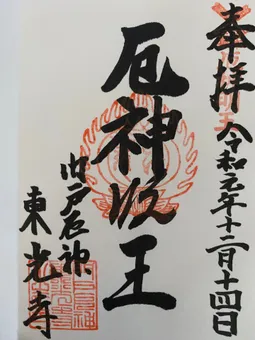 奉拝
令和元年十二月十四日
厄神明王
門戸厄神
東光寺